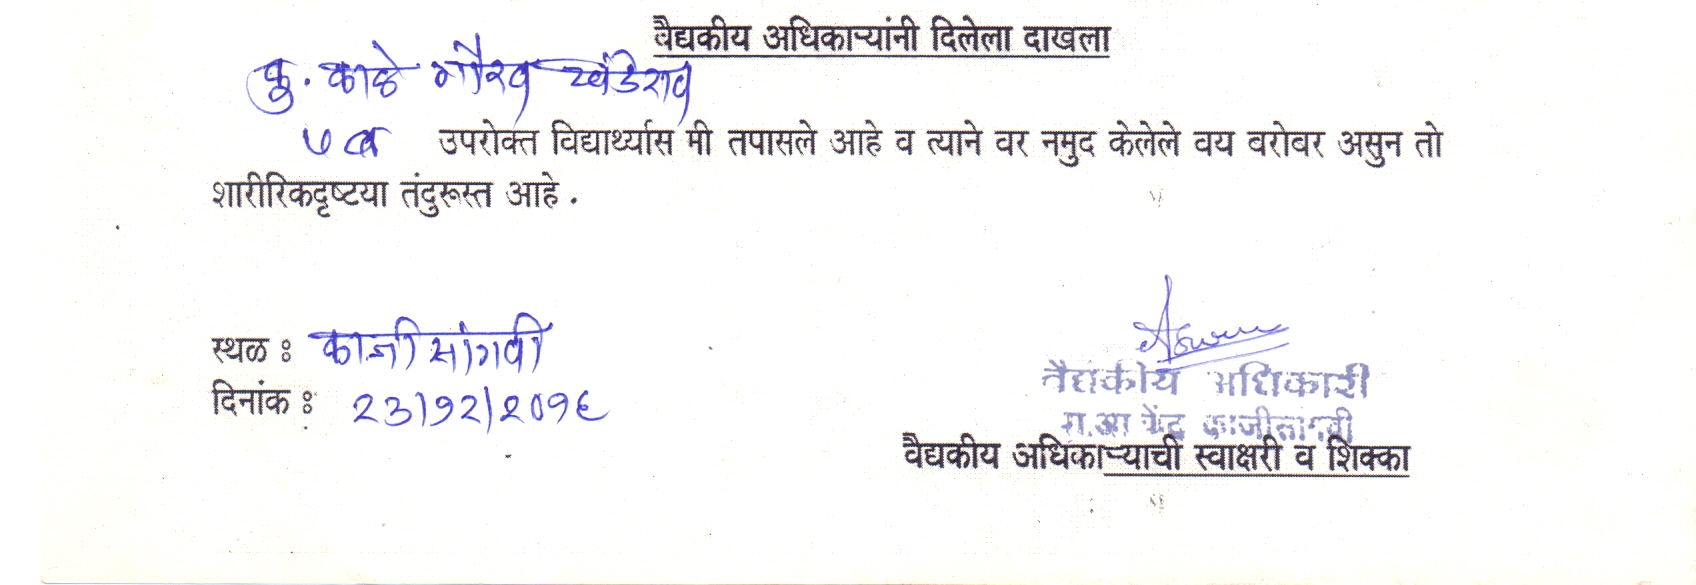 वैद्यकीय अधिकाऱ्यांनी दिलेला दाखला
कु. काळे गौरव खंडेराव
७ व उपरोक्त विद्यार्थ्यास मी तपासले आहे व त्याने वर नमुद केलेले वय बरोबर असुन तो
शारीरिकदृष्टया तंदुरूस्त आहे .
स्थळ : काजी सांगवी
दिनांक : 23/१2/२०१६
वैद्यकीय अधिकारी
प्रा.आ केंद्र काजीसांगवी
वैद्यकीय अधिकाऱ्याची स्वाक्षरी व शिक्का